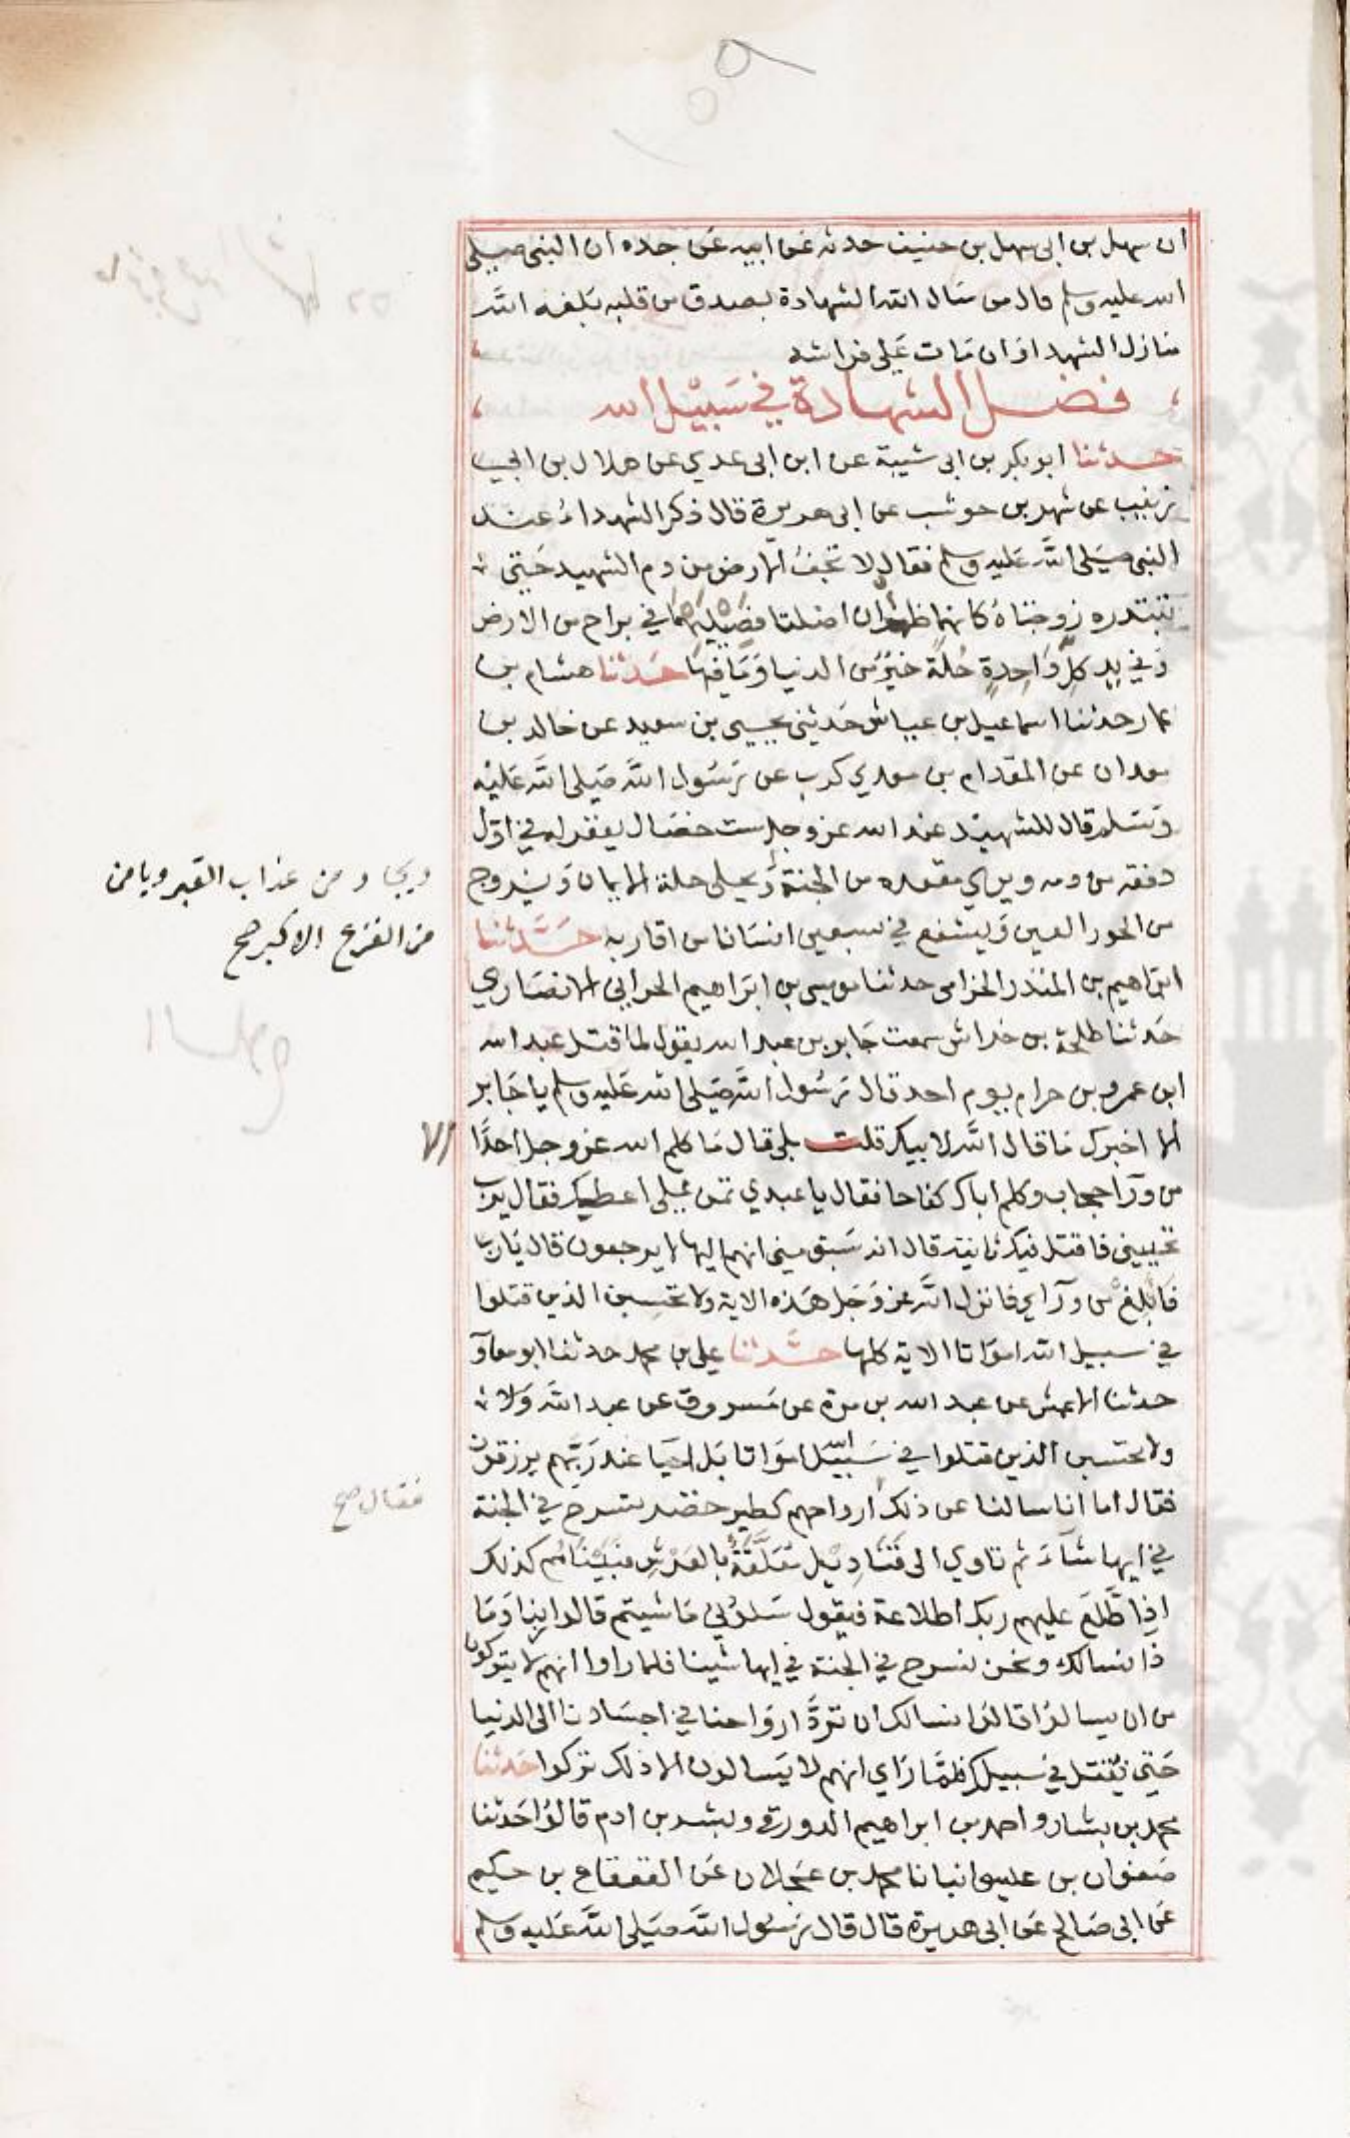 ان سهل بن ابى سهل بن حنيف حدثه عن ابيه عن جده ان النبى صلى
الله عليه وسلم قال من سال الله الشهادة بصدق من قلبه بلغه الله
منازل الشهدا وان مات على فراشه
فضل الشهادة في سبيل الله
حدثنا ابو بكر بن ابى شيبة عن ابن ابى عدي عن هلال بن ابى
زينب عن شهر بن حوشب عن ابى هريرة قال ذكر الشهداء عند
النبى صلى الله عليه وسلم فقال لا تجف الارض من دم الشهيد حتى
تبتدره زوجتاه كانهما ظئران اضلتا فصيليهما في براح من الارض
وفي يد كل واحدة حلة خير من الدنيا وما فيها حدثنا هشام بن
عمار حدثنا اسماعيل بن عياش حدثني يحيى بن سعيد عن خالد بن
معدان عن المقدام بن معدي كرب عن رسول الله صلى الله عليه
وسلم قال للشهيد عند الله عز وجل ست خصال يغفر له في اول
دفقه من دمه ويري مقعده من الجنة ويحلى حلة الايمان ويزوج
من الحور العين ويشفع في سبعين انسانا من اقاربه حدثنا
ابراهيم بن المنذر الحزامى حدثنا موسى بن ابراهيم الحرابي الانصاري
حدثنا طلحة بن خراش سمعت جابر بن عبد الله يقول لما قتل عبد الله
ابن عمرو بن حرام يوم احد قال رسول الله صلى الله عليه وسلم يا جابر
الا اخبرك ما قال الله لابيك قلت بلى قال ما كلم الله عز وجل احدا
من ورآ حجاب وكلم اباك كفاحا فقال يا عبدي تمن على اعطيك فقال يرب
تحييني فاقتل فيك ثانية قال انه سبق منى انهم اليها لا يرجعون قال يارب
فابلغ من ورآاي فانزل الله عز وجل هذه الاية ولا تحسبن الذين قتلوا
في سبيل الله امواتا الاية كلها حدثنا على بن محمد حدثنا ابو معاو
حدثنا الاعمش عن عبد الله بن مرة عن مسروق عن عبد الله ولا
ولا تحسبن الذين قتلوا في سبيل الله امواتا بل احيا عند ربهم يرزقون
فقال اما انا سالنا عن ذلك ارواحهم كطير خضر تسرح في الجنة
في ايها شآءت ثم تاوي الى قناديل معلقة بالعرش فبينماهم كذلك
اذا طلع عليهم ربك اطلاعة فيقول سلوني ما شيتم قالوا ربنا وما
ذا نسالك ونحن نسرح في الجنة في ايها شينا فلما راوا انهم لا يتركون
من ان يسالوا قالوا نسالك ان ترد ارواحنا في اجسادنا الى الدنيا
حتى نقتل في سبيلك فلما راي انهم لا يسالون الا ذلك تركوا حدثنا
محمد بن بشار واحمد بن ابراهيم الدورقي وبشر بن ادم قالوا حدثنا
صفوان بن عيسى انبانا محمد بن عجلان عن القعقاع بن حكيم
عن ابى صالح عن ابى هريرة قال قال رسول الله صلى الله عليه وسلم
ويجار من عذاب القبر ويامن
من الفزع الاكبر صح
فقال صح